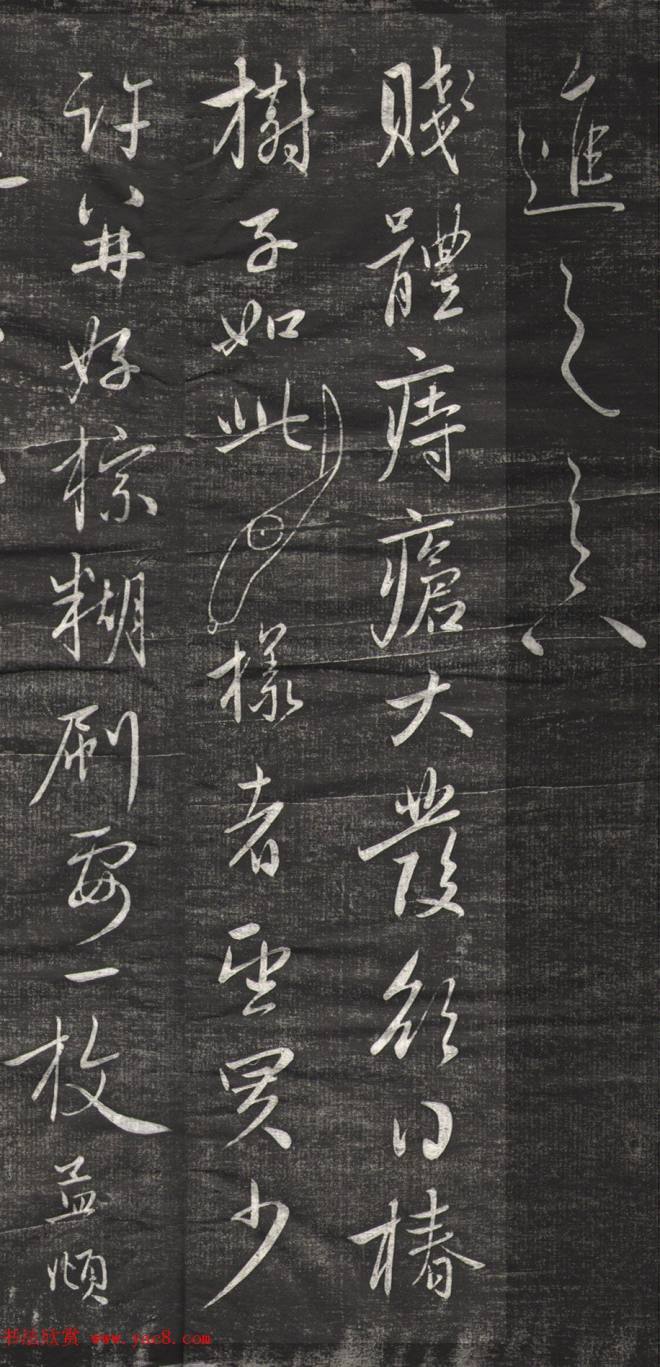 進之
賤體痔瘡大發欲椿
樹子如此樣者望買少
許并好棕糊刷要一枚孟頫
书法欣赏 www.yac8.com